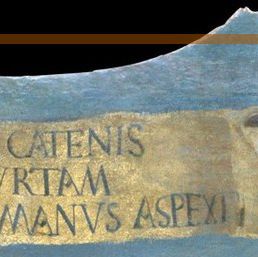 CATENIS
VRTAM
MANVS ASPEXIT